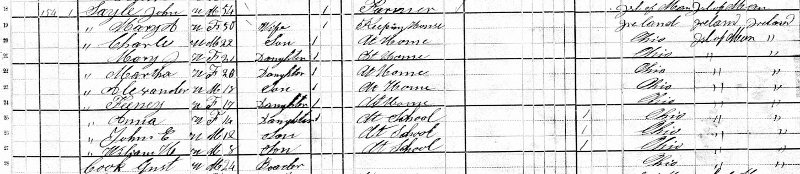 18 154 1 Sayle John W M 54 1 Farmer Isl of Man Isl of Man
19 " Mary A W F 50 Wife 1 Keeping House Ireland Ireland Ireland
20 " Charle W M 22 Son 1 At Home Ohio Isl of Man "
21 " Mary J W F 21 Daughter 1 At Home Ohio " "
22 " Martha W F 20 Daughter 1 At Home Ohio " "
23 " Alexander W M 18 Son 1 At Home Ohio " "
24 " W F 17 Daughter 1 At Home Ohio " "
25 " Anna W F 14 Daughter 1 At School 1 Ohio " "
26 " John E W M 12 Son At School 1 Ohio " "
27 " William H W M 8 Son At School 1 Ohio " "
28 Cook Gust W M 24 Boarder Ohio " "